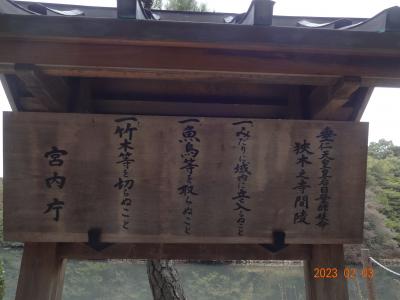 垂仁天皇皇后日葉酢媛命
狭木之寺間陵
一みだりに域内に立入らぬこと
一魚鳥等を取らぬこと
一竹木等を切らぬこと
宮内庁
2023 02 03